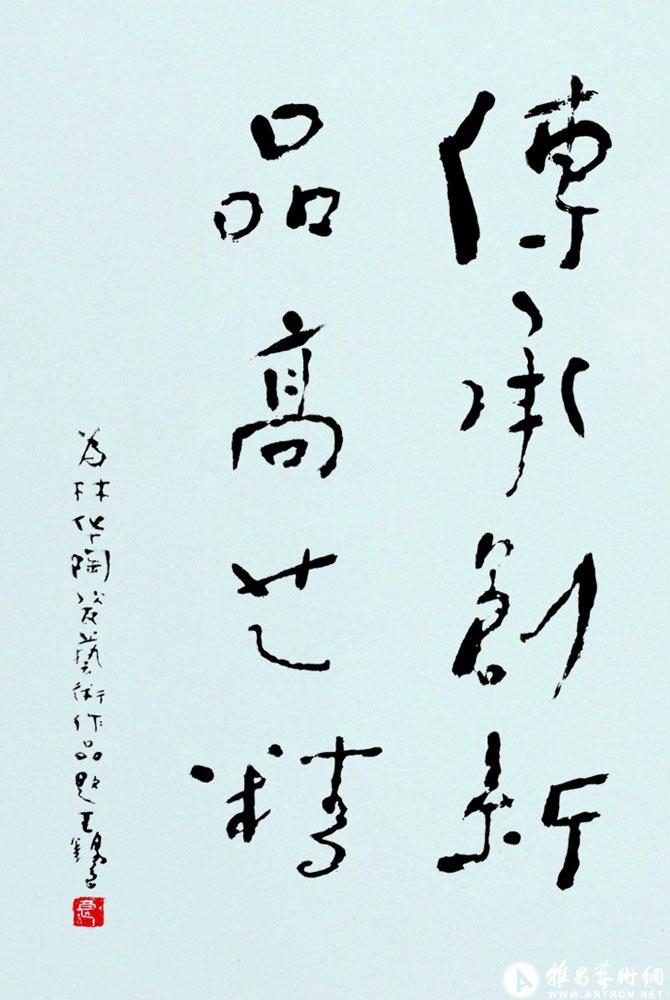 傳承創新
品高艺精
為林华陶瓷藝術作品題王錫良
雅昌藝術網
WWW.ARTRON.NET